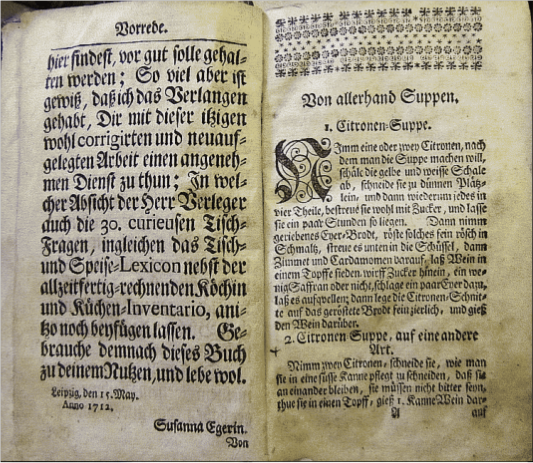 Vorrede.
hier findest, vor gut solle gehal-
ten werden; So viel aber ist
gewiß, daß ich das Verlangen
gehabt, Dir mit dieser itzigen
wohl corrigirten und neuauf-
gelegten Arbeit einen angeneh-
men Dienst zu thun; In wel-
cher Absicht der Herr Verleger
auch die 30. curieusen Tisch-
Fragen, ingleichen das Tisch-
und Speise-Lexicon nebst der
allzeitfertig-rechnenden Köchin
und Küchen-Inventario, ani-
tzo noch beyfügen lassen. Ge-
brauche demnach dieses Buch
zu deinem Nutzen, und lebe wol.
Leipzig, den 15. May.
Anno 1712.
Susanna Egerin.
Von
Von allerhand Suppen.
1. Citronen-Suppe.
NImm eine oder zwey Citronen, nach
dem man die Suppe machen will,
schäle die gelbe und weisse Schale
ab, schneide sie zu dünnen Plätz-
lein, und dann wiederum jedes in
vier Theile, bestreue sie wohl mit Zucker, und lasse
sie ein paar Stunden so liegen. Dann nimm
geriebenes Eyer-Brodt, röste solches fein rösch in
Schmaltz, streue es unten in die Schüssel, dann
Zimmet und Cardamomen darauf, laß Wein in
einem Topffe sieden, wirff Zucker hinein, ein we-
nig Saffran oder nicht, schlage ein paar Eyer dazu,
laß es aufwellen; dann lege die Citronen-Schnit-
te auf das geröstete Brodt fein zierlich, und gieß
den Wein darüber.
2. Citronen Suppe, auf eine andere
Art.
Nimm zwey Citronen, schneide sie, wie man
sie in eine süsse Kanne pflegt zu schneiden, daß sie
an einander bleiben, sie müssen nicht bitter seyn,
thue sie in einen Topff, gieß 1. Kanne Wein dar-
A auf